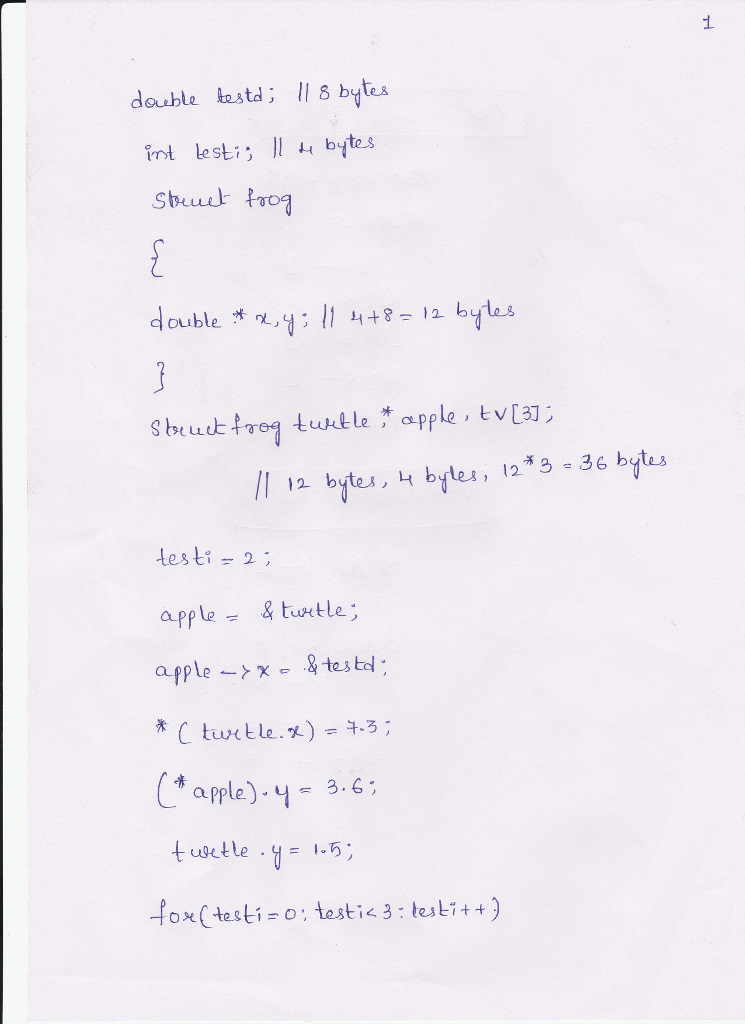 1
double testd; // 8 bytes
int testi; // 4 bytes
struct frog
{
double * x,y; // 4+8 = 12 bytes
}
struct frog turtle, * apple, tv[3];
// 12 bytes, 4 bytes, 12*3 = 36 bytes
testi = 2;
apple = &turtle;
apple -> x = &testd;
*(turtle.x) = 7.3;
(*apple).y = 3.6;
turtle.y = 1.5;
for(testi=0; testi<3; testi++)